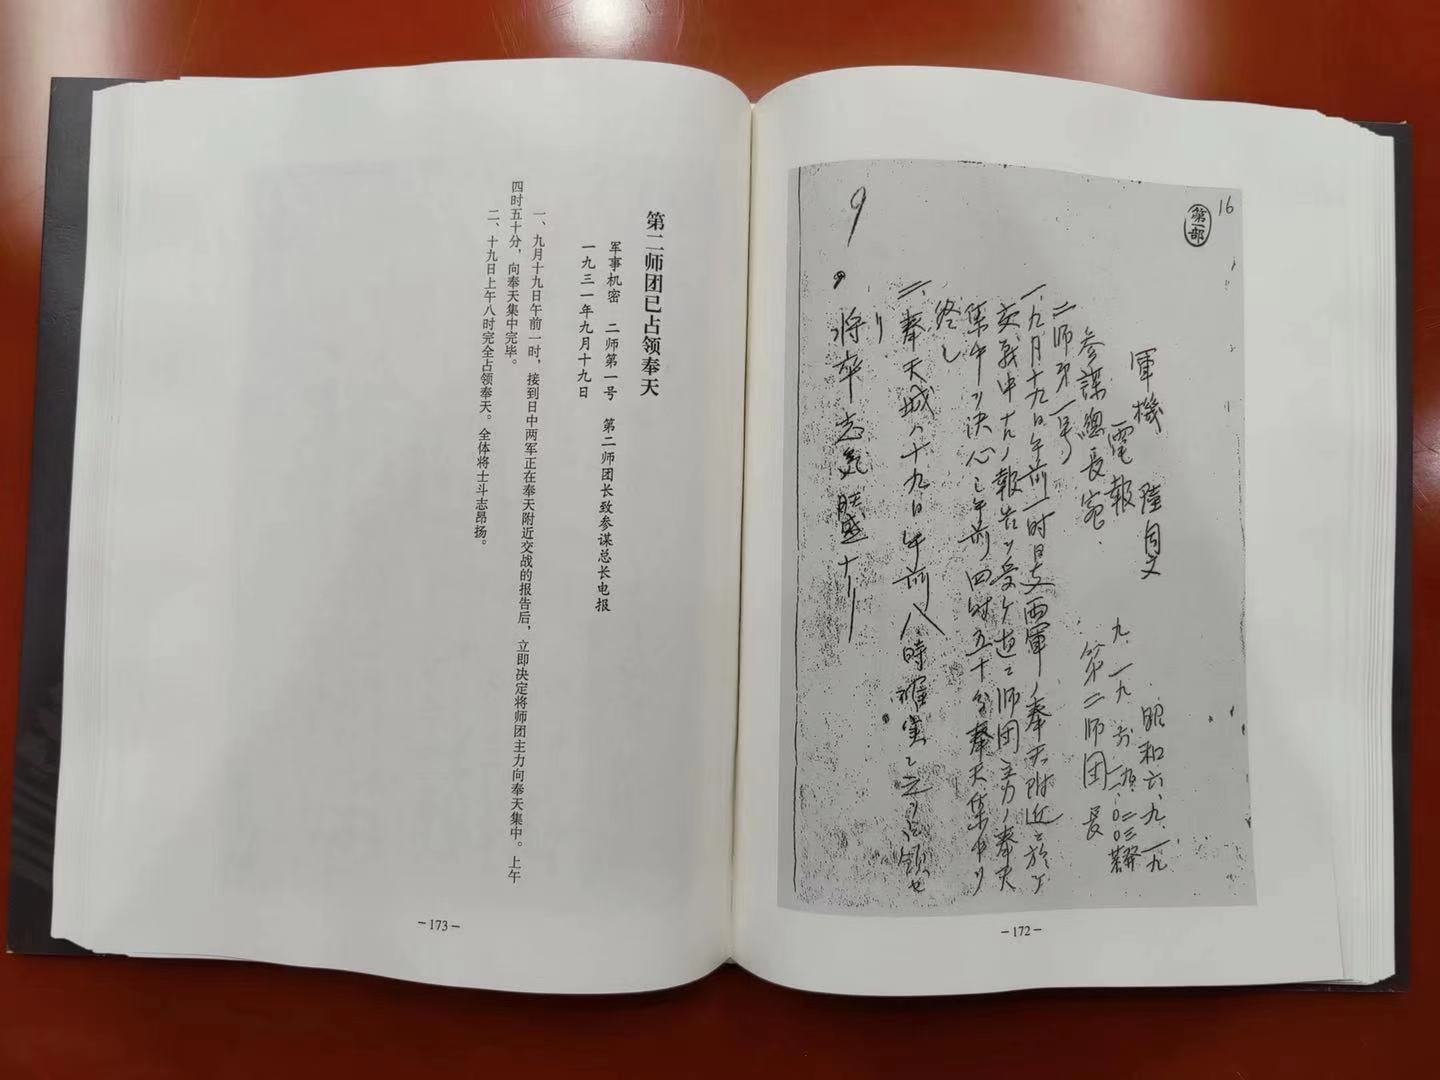 16
第一部
軍機
電報
昭和六、九、一九
参謀總長宛
第二師団長
二師第一号
一、九月十九日午前一時日支両軍ノ奉天附近ニ於テ
交戦中ナルノ報告ヲ受ケ直ニ師団主力ノ奉天
集中ヲ決心シ午前四時五十分奉天集中ヲ
終レリ
二、奉天城ハ十九日午前八時確実ニ之ヲ占領セリ
将卒志気旺盛ナリ
9
—172—
第二师团已占领奉天
军事机密 二师第一号 第二师团长致参谋总长电报
一九三一年九月十九日
一、九月十九日午前一时，接到日中两军正在奉天附近交战的报告后，立即决定将师团主力向奉天集中。上午
四时五十分，向奉天集中完毕。
二、十九日上午八时完全占领奉天。全体将士斗志昂扬。
—173—